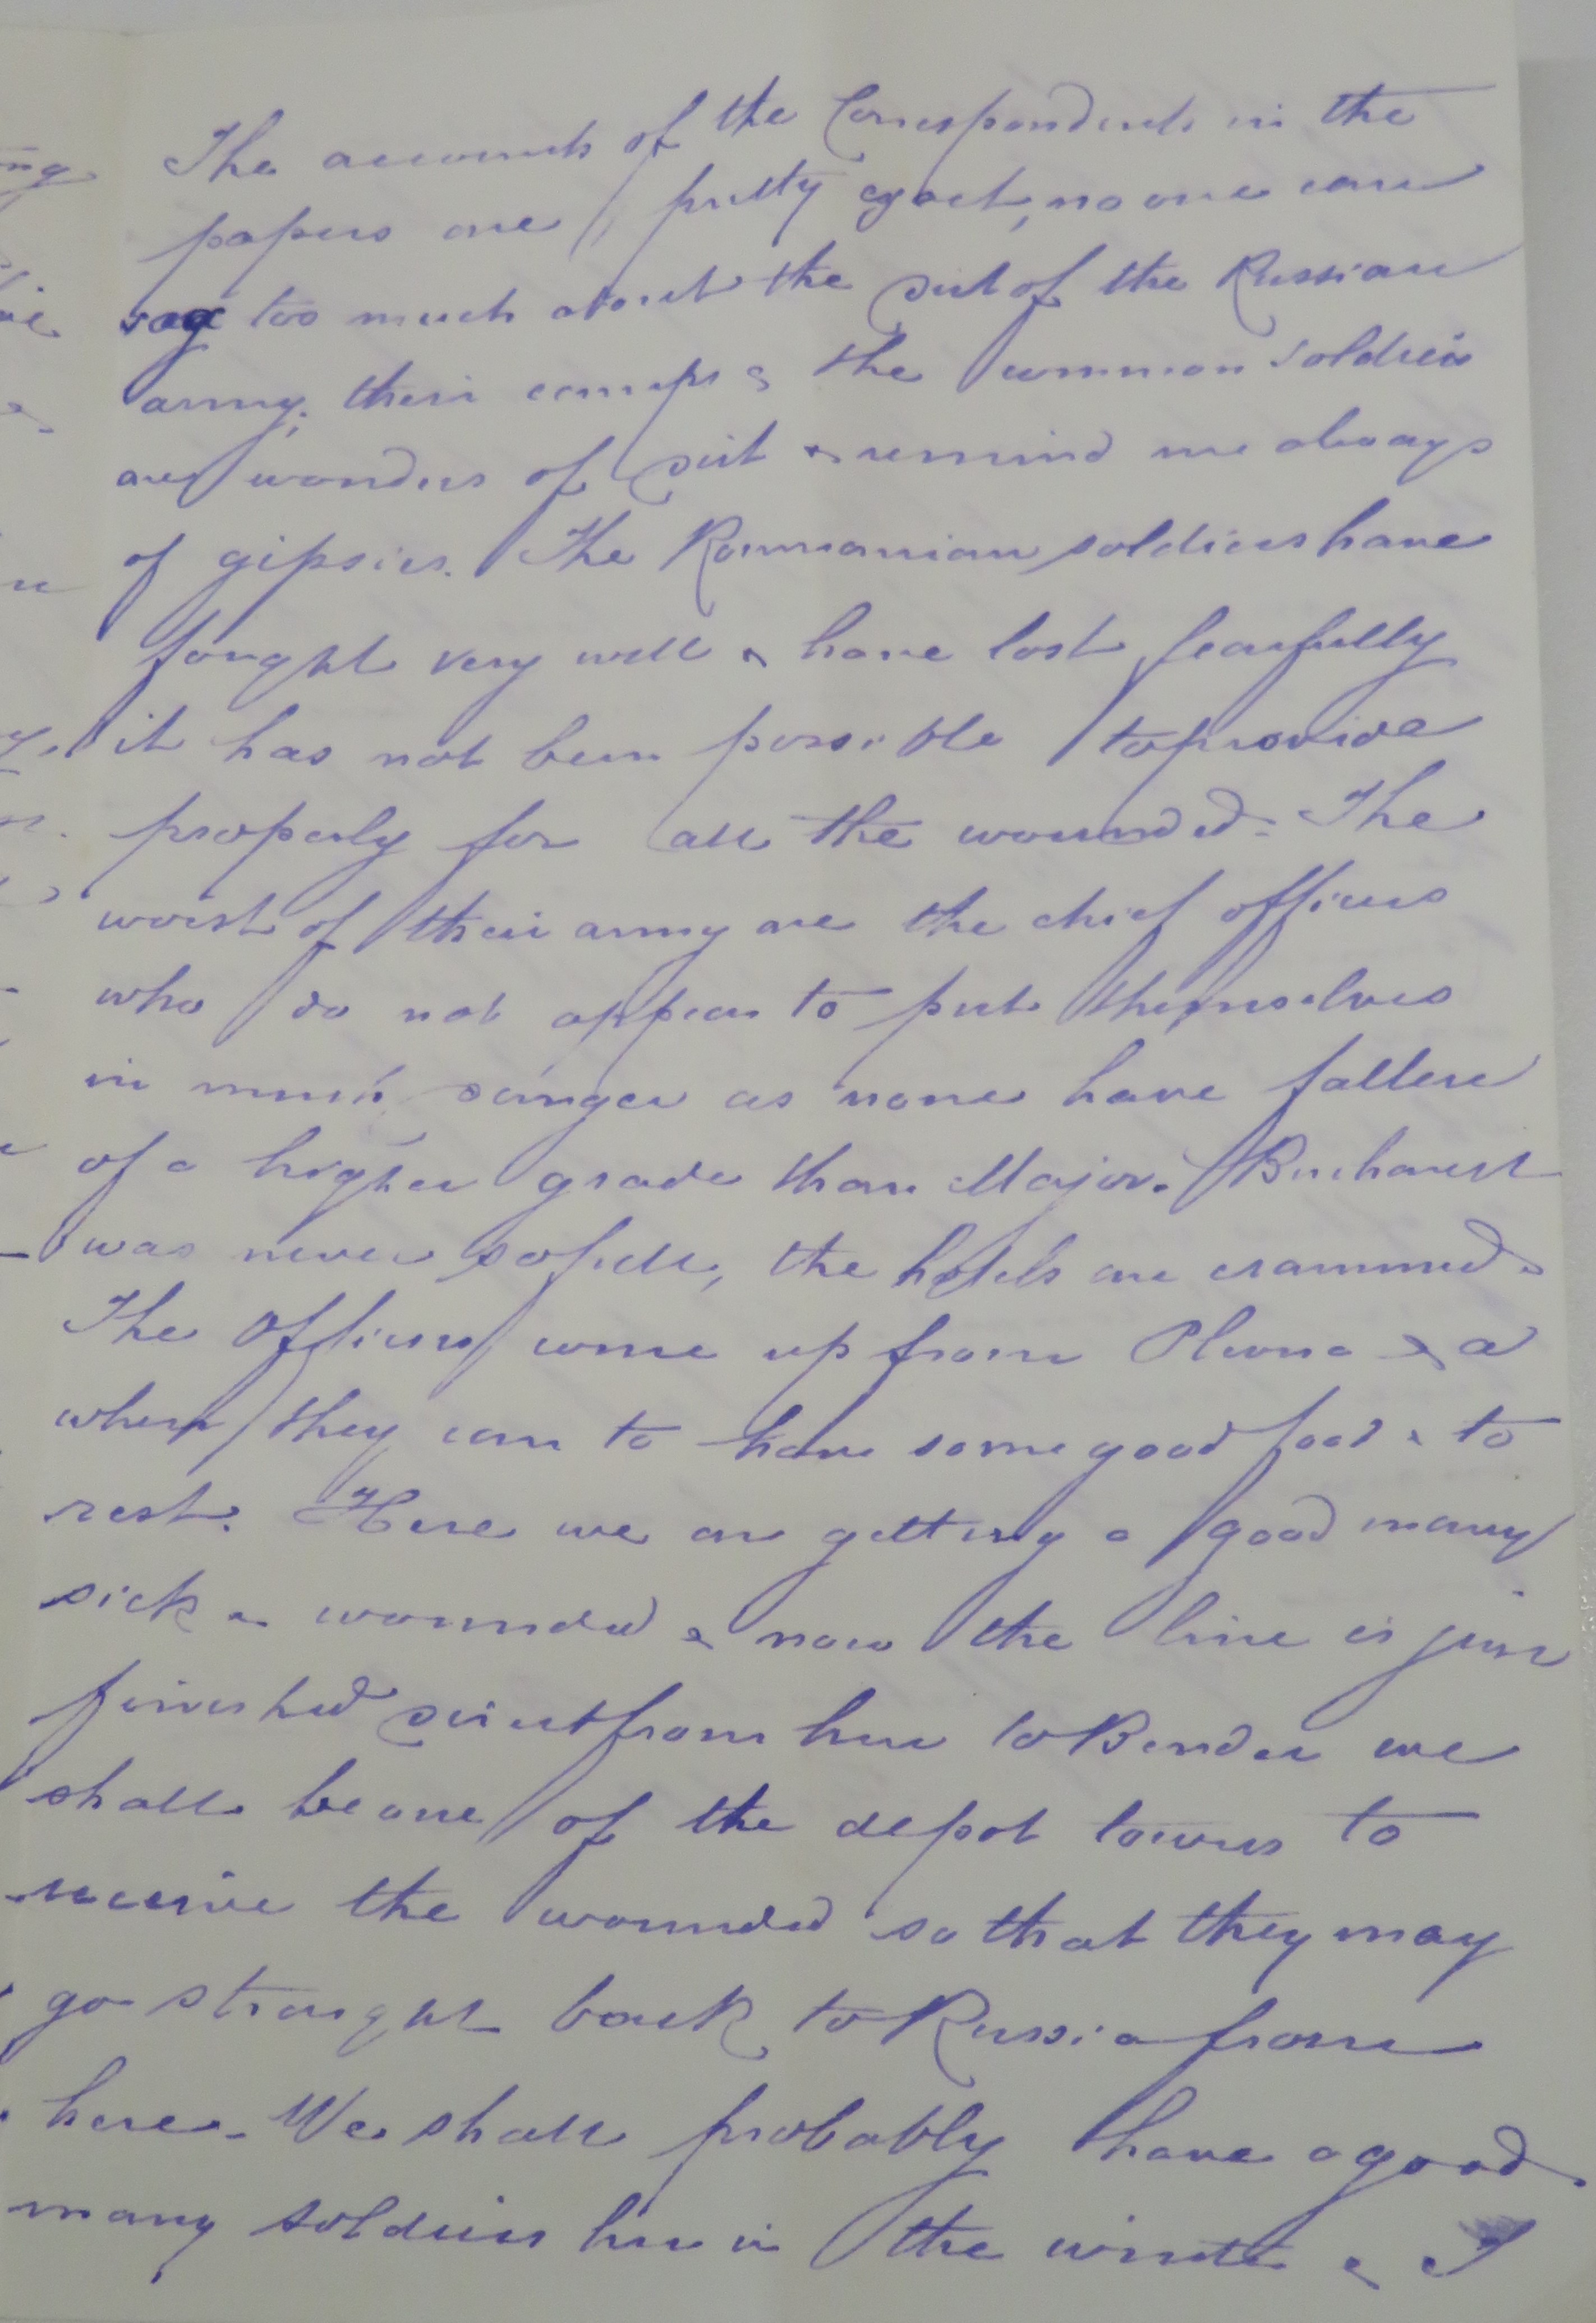 The accounts of the Correspondents in the
papers are pretty exact, no one can
say too much about the dirt of the Russian
army, their camps & the common soldiers
are wonders of dirt & remind me always
of gipsies. The Roumanian soldiers have
fought very well & have lost fearfully
it has not been possible to provide
properly for all the wounded. The
worst of their army are the chief officers
who do not appear to put themselves
in much danger as none have fallen
of a higher grade than Major. Bucharest
was never so full, the hotels are crammed.
The Officers come up from Plevna &a
when they can to have some good food & to
rest. Here we are getting a good many
sick & wounded & now the line is just
finished direct from here to Bender we
shall be one of the depot towns to
receive the wounded so that they may
go straight back to Russia from
here. We shall probably have a good
many soldiers here in the winter & I